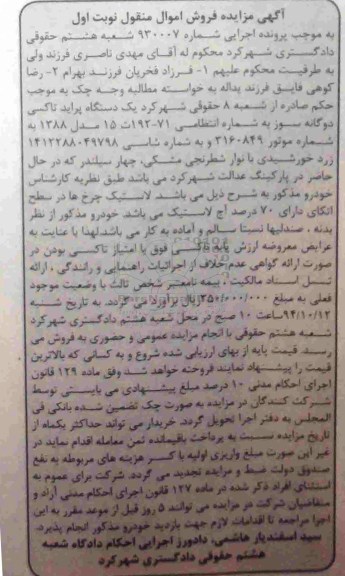 آگهی مزایده فروش اموال منقول نوبت اول
به موجب پرونده اجرایی شماره ۹۳۰۰۰۷ شعبه هشتم حقوقی
دادگستری شهرکرد محکوم له آقای مهدی ناصری فرزند ولی
به طرفیت محکوم علیهم ۱- فرزاد فخریان فرزند بهرام ۲- رضا
کوهی فایق فرزند یداله به خواسته مطالبه وجه چک به موجب
حکم صادره از شعبه ۸ حقوقی شهرکرد یک دستگاه پراید تاکسی
دوگانه سوز به شماره انتظامی ۷۱-۱۹۲ت ۱۵ مدل ۱۳۸۸ به
شماره موتور ۳۱۶۰۸۴۹ و به شماره شاسی ۱۴۱۲۲۸۸۰۴۹۷۹۸
زرد خورشیدی با نوار شطرنجی مشکی، چهار سیلندر که در حال
حاضر در پارکینگ عدالت شهرکرد می باشد طبق نظریه کارشناس
خودرو مذکور به شرح ذیل می باشد. لاستیک چرخ ها در سطح
اتکای دارای ۷۰ درصد آج لاستیک می باشد خودرو مذکور از نظر
بدنه ، صندلیها نسبتا سالم و آماده به کار می باشد.لهذا با عنایت به
عرایض معروضه ارزش پایه تاکسی فوق با امتیاز تاکسی بودن در
صورت ارائه گواهی عدم خلاف از اجرائیات راهنمایی و رانندگی ، ارائه
تسل اسناد مالکیت ، بیمه نامعتبر شخص ثالث با وضعیت موجود
فعلی به مبلغ ۲۵۰/۰۰۰/۰۰۰ریال برآورد می گردد. به تاریخ شنبه
۹۴/۱۰/۱۲ساعت ۱۰ صبح در محل شعبه هشتم دادگستری شهرکرد
شعبه هشتم حقوقی با انجام مزایده عمومی و حضوری به فروش می
رسد. قیمت پایه از بهای ارزیابی شده شروع و به کسانی که بالاترین
قیمت را پیشنهاد نمایند فروخته خواهد شد وفق ماده ۱۲۹ قانون
اجرای احکام مدنی ۱۰ درصد مبلغ پیشنهادی می بایستی توسط
شرکت کنندگان در مزایده به صورت چک تضمین شده بانکی فی
المجلس به دفتر اجرا تحویل گردد. خریدار می تواند حداکثر یکماه از
تاریخ مزایده نسبت به پرداخت باقیمانده ثمن معامله اقدام نماید در
غیر این صورت مبلغ واریزی اولیه با کسر هزینه های مربوطه به نفع
صندوق دولت ضبط و مزایده تجدید می گردد. شرکت برای عموم به
استثنای افراد ذکر شده در ماده ۱۲۷ قانون اجرای احکام مدنی آزاد و
متقاضیان شرکت در مزایده می توانند ۵ روز قبل از موعد مقرر به این
اجرا مراجعه تا اقدامات لازم جهت بازدید خودرو مذکور انجام پذیرد.
سید اسفندیار هاشمی، دادورز اجرایی احکام دادگاه شعبه
هشتم حقوقی دادگستری شهرکرد